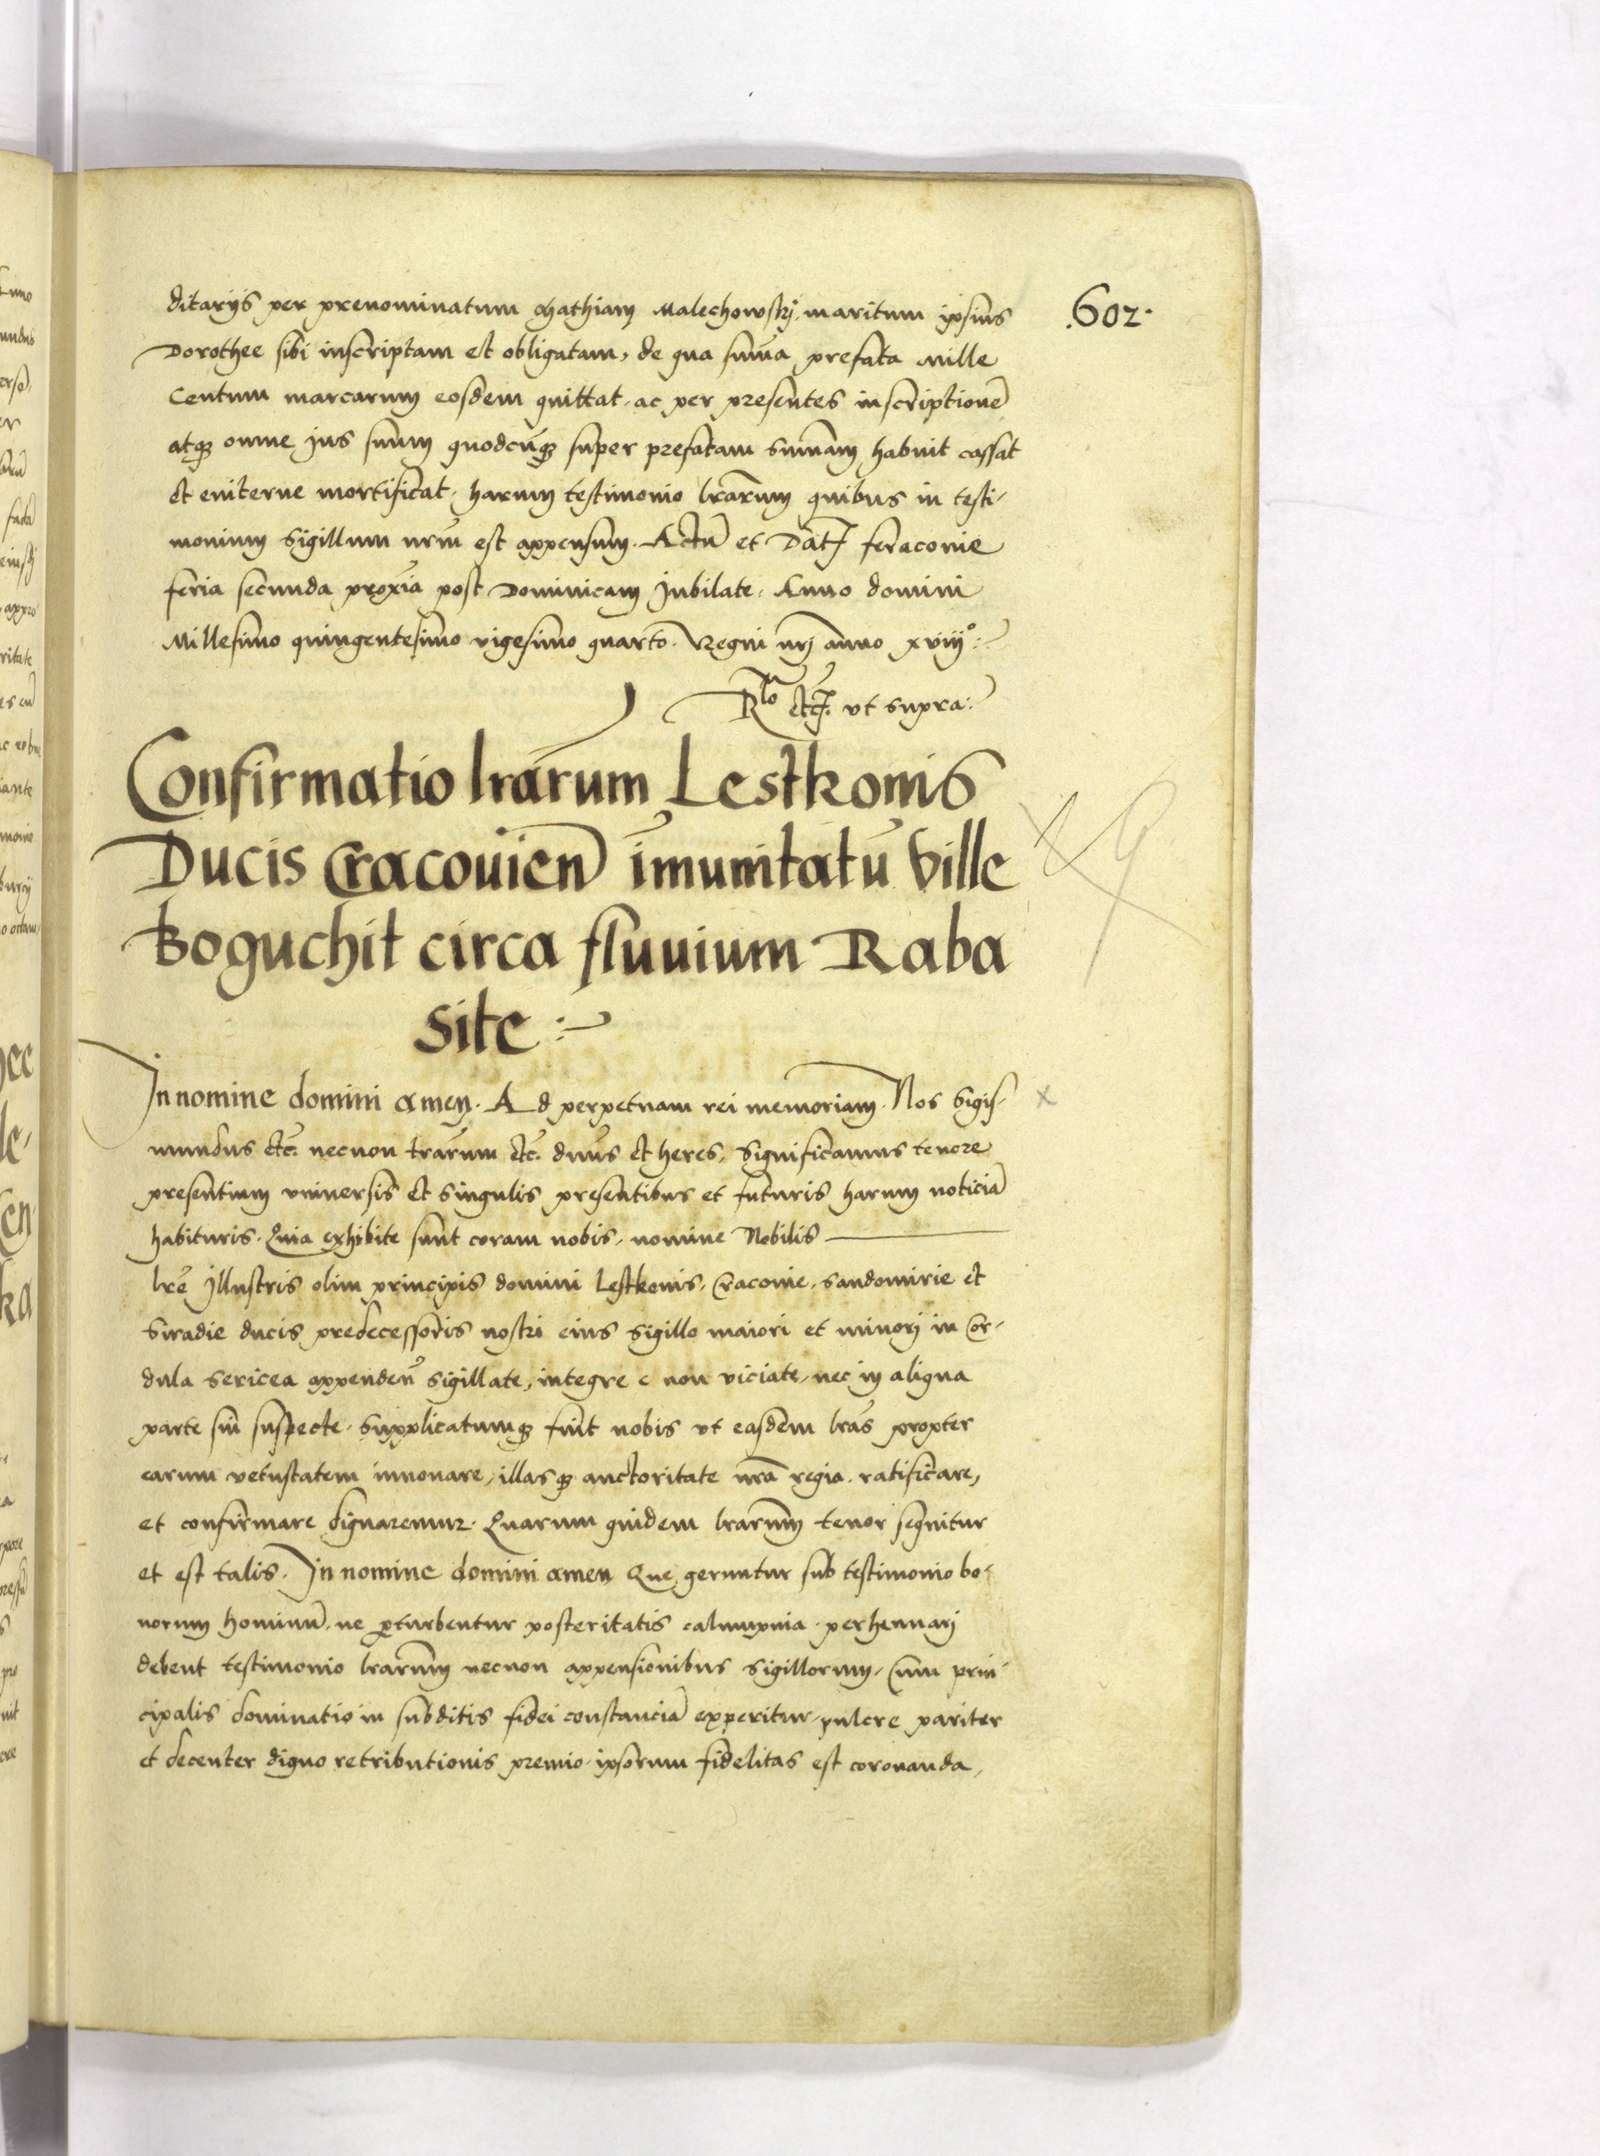 .602.
ditarijs per prenominatum Mathiam Malechowskj, maritum ipsius
Dorothee sibi inscriptam et obligatam, de qua sum̃a prefata Mille
Centum marcarum eosdem quittat, ac per presentes inscriptionẽ
atqʒ omne jus suum quodcũqʒ super prefatam sum̃am habuit cassat
et eviterne mortificat, harum testimonio lr̃arum quibus in testi-
monium sigillum nrũm est appensum. Actũ et Dat̃ Cracovie
feria secunda proxĩa post Dominicam Jubilate. Anno domini
Millesimo quingentesimo vigesimo quarto. Regni nrj̃ anno xviijº:
Rlo etc̃. vt supra:
Confirmatio lrãrum Lestkonis
Ducis Cracovien̄ im̃unitatũ Ville
Boguchit circa fluuium Raba
site:
In nomine domini amen. Ad perpetuam rei memoriam. Nos Sigis-
mundus etc̃. necnon trãrum etc̃. dñus et heres, Significamus tenore
presentium vniuersis et singulis presentibus et futuris harum noticiã
habituris. Quia exhibite sunt coram nobis, nomine Nobilis
lrẽ Jllustris olim principis domini Lestkonis, Cracovie, Sandomirie et
Siradie ducis predecessoris nostri eius sigillo maiori et minorj in Cor-
dula sericea appenden̄ sigillate, integre et non viciate, nec in aliqua
parte sui suspecte. Supplicatumqʒ fuit nobis vt easdem lrãs propter
earum vetustatem innouare, illasqʒ auctoritate nrã regia ratificare,
et confirmare dignaremur. Quarum quidem lrãrum tenor sequitur
et est talis. In nomine domini amen Que geruntur sub testimonio bo-
norum hominũ, ne ꝑturbentur posteritatis calumpnia perhennarj
debent testimonio lrãrum necnon appensionibus sigillorum, Cum prin-
cipalis dominatio in subditis fidei constanciã experitur, pulcre pariter
et decenter digno retributionis premio ipsorum fidelitas est coronanda,